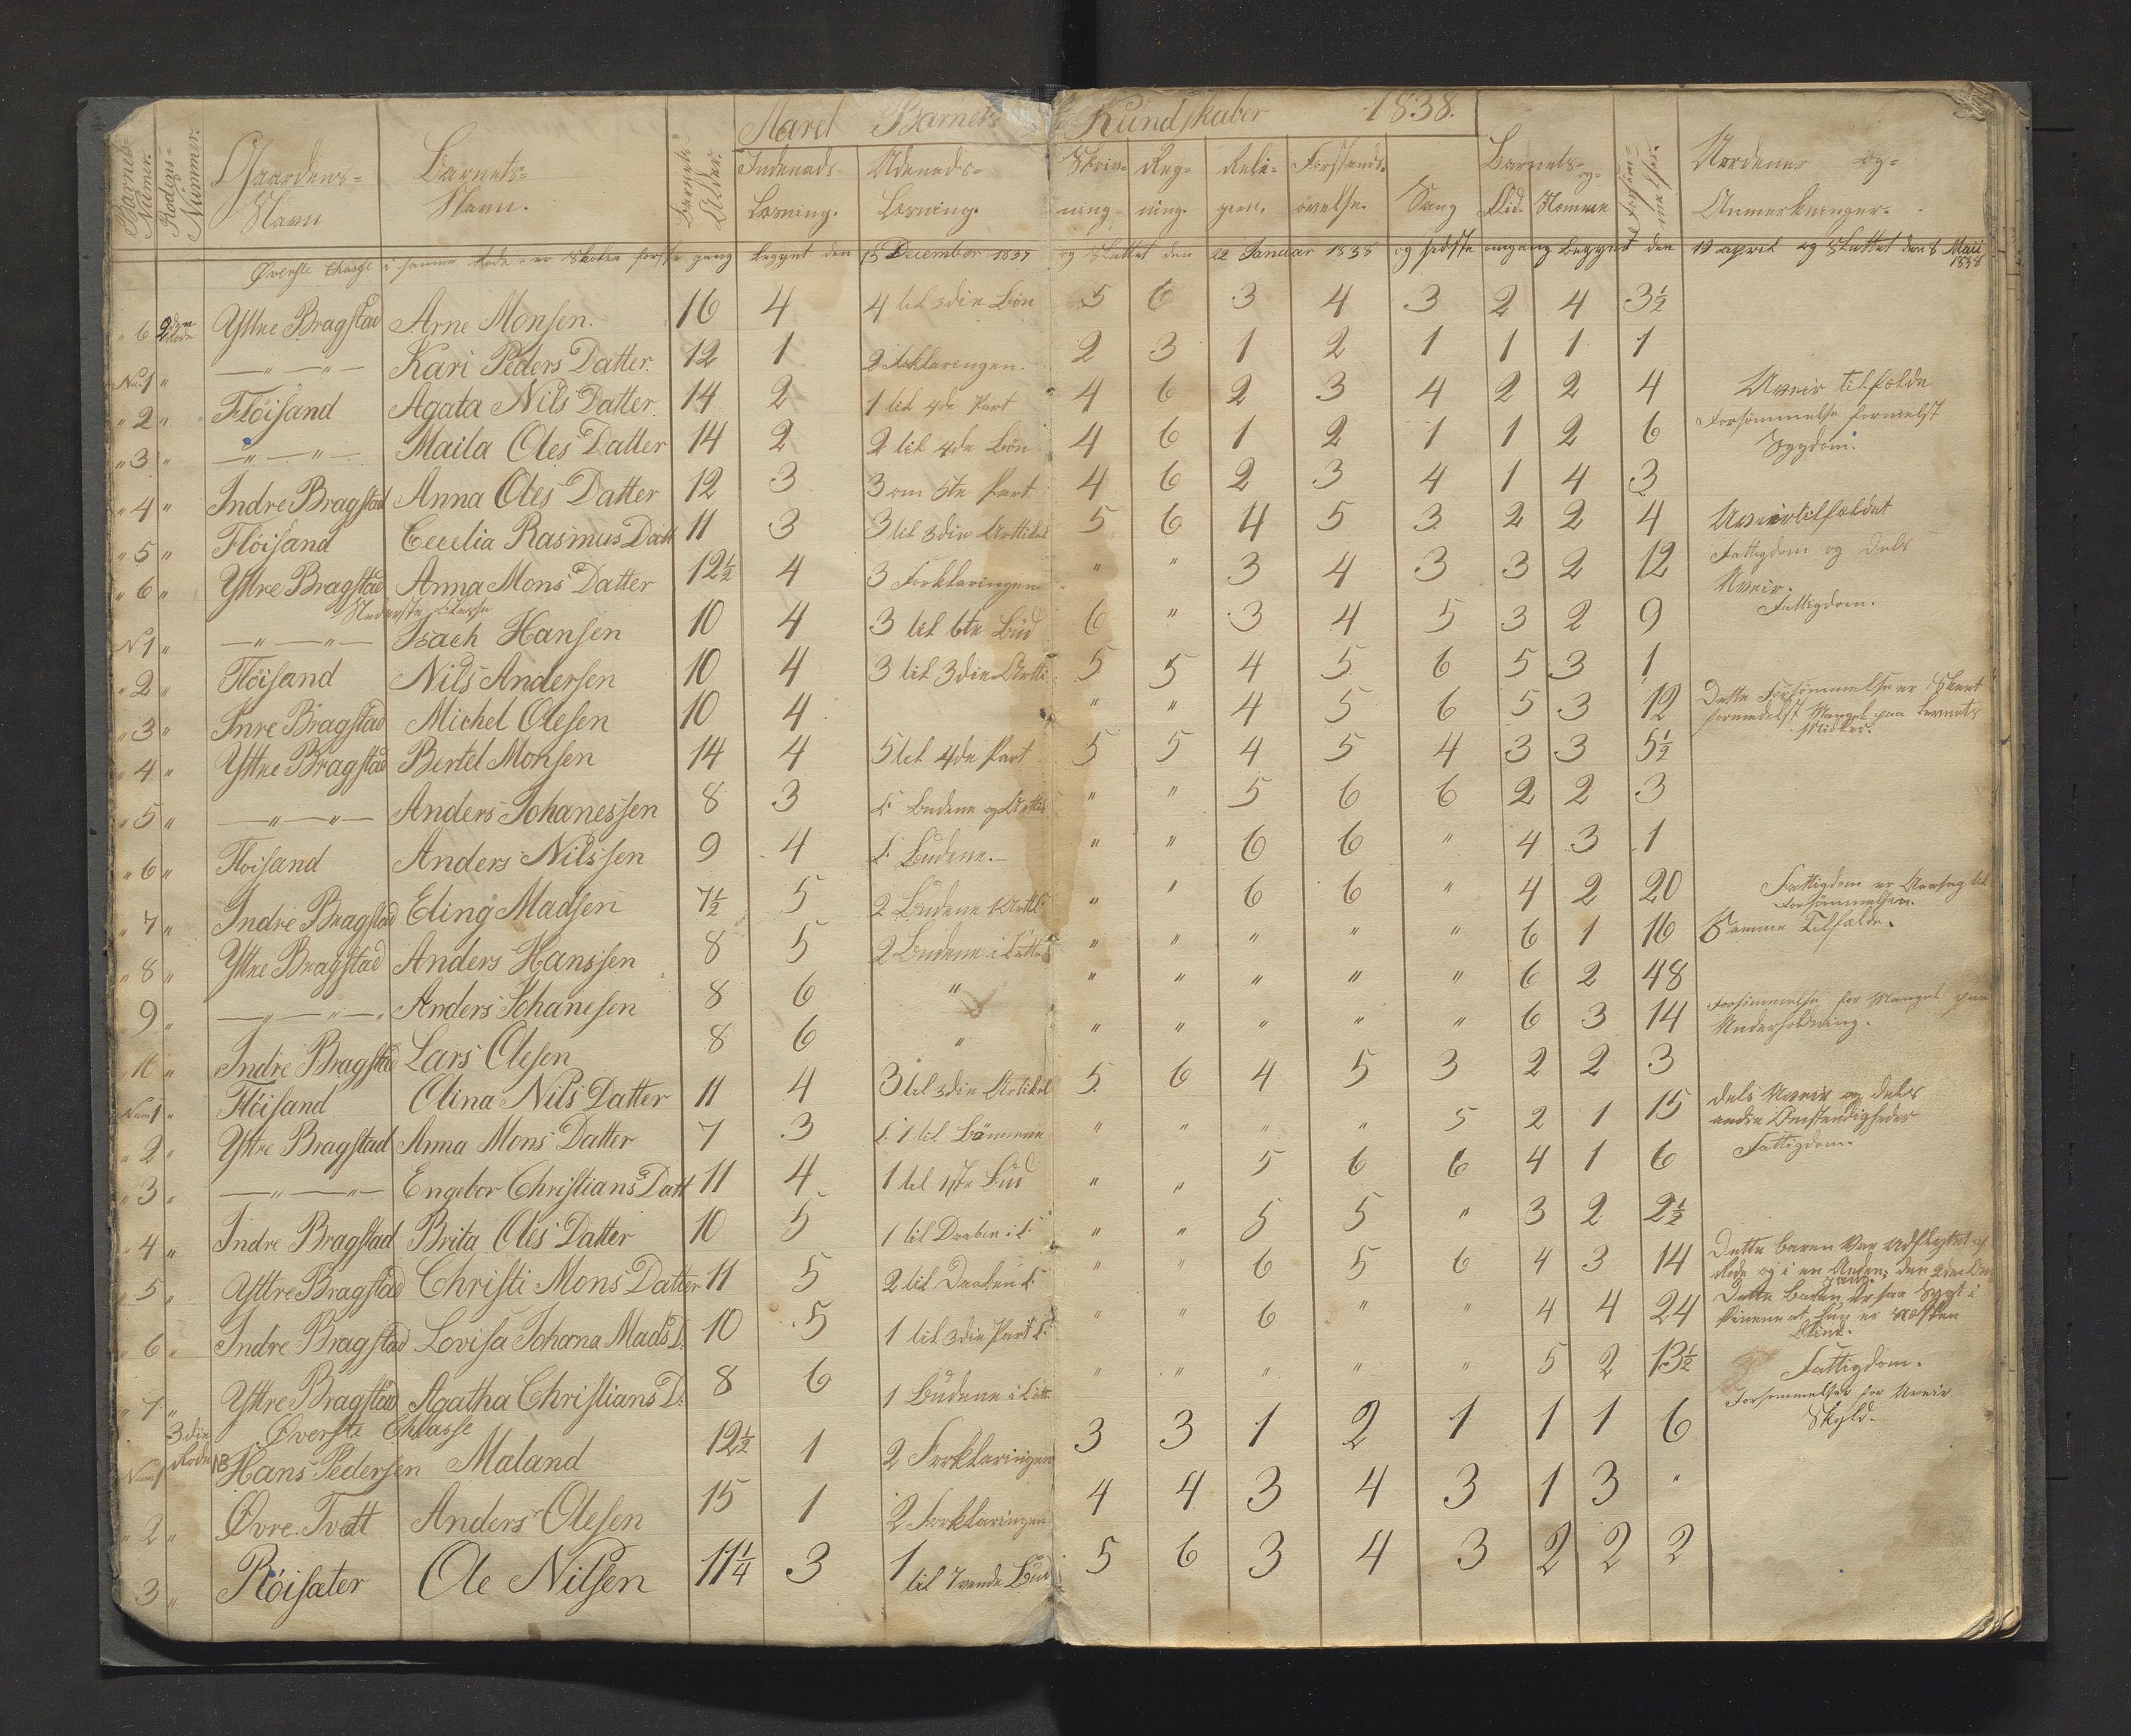 Aaret Barnets Kundskaber 1838.
Barnets Numer. Rodens Nummer. Gaardens Navn Barnets Navn. Barnets Alder. Indenads Læsning. Udenads Læsning. Skrivning Regning. Religion. Forstands øvelse. Sang Barnets Flid og Nemme Forsømmelser. Værdener og Anmerkninger.
Øverste Classe i samme Rode er Skolen første gang begynt den 15 December 1837 og Sluttet den 22 Januar 1838 og sidste omgang begynt den 19 april og Sluttet den 8 Mai 1838
" 6 2den Rode Yttre Bragstad Arne Monsen. 16 4 4 til 3die Bøn 5 6 3 4 3 2 4 3½
Nu: 1 " — " — " — Kari Peders Datter. 12 1 2 Forklaringen. 2 3 1 2 1 1 1 1
" 2 " Flöisand Agata Nils Datter 14 2 1 til 4de Part 4 6 2 3 4 2 2 4 Uveir tilfælde
" 3 " — " — " — Maila Oles Datter 14 2 2 til 4de Bøn 4 6 1 2 1 1 2 6 Forsömmelse formelst Sygdom.
" 4 " Indre Bragstad Anna Oles Datter 12 3 3 om 5te Part 4 6 2 3 4 1 4 3
" 5 " Flöisand Cecelia Rasmus Datt 11 3 3 til 3die Arttikel 5 6 4 5 3 2 2 4 Uveirtilfældet
" 6 " Yttre Bragstad Anna Mons Datter 12½ 4 3 Forklaringen " " 3 4 3 3 2 12 Fattigdom og dels Uveir.
Nederste Classe
N 1 " — " — " — Isach Hansen 10 4 3 til 6te Bud 6 " 3 4 5 3 2 9 Fattigdom.
" 2 " Flöisand Nils Andersen 10 4 3 til 3die Artti 5 5 4 5 6 5 3 1
" 3 " Inre Bragstad Michel Olesen 10 4 " " 4 5 6 5 3 12 Dette Forsömmelse er Skeet formedelst Mangel paa Levnets Midler.
" 4 " Yttre Bragstad Bertel Monsen 14 4 5 til 4de Part 5 5 4 5 4 3 3 5½
" 5 " — " — " — Anders Johanessen 8 3 L: Budene og Arttik " " 5 6 6 2 2 3
" 6 " Floisand Anders Nilssen 9 4 L: Budene. — " " 6 6 " 4 3 1
" 7 " Indre Bragstad Eling Madsen 7½ 5 2 Budene " " 6 6 " 4 2 20 Fattigdom er Aarsag til Forsömmelsen.
" 8 " Yttre Bragstad Anders Hanssen 8 5 2 Budene i " " " " " 6 1 16 Samme Tilfælde.
9 " — " — " — Anders Johanesen 8 6 " " " " " " 6 2 48
" 10 " Indre Bragstad Lars Olesen 8 6 " " " " " " 6 3 14 Forsömmelse for Mangel paa Underholdning.
Num 1 " Flöisand Olina Nils Datter 11 4 3 til 3die Artikel 5 6 4 5 3 2 2 3
" 2 " Yttre Bragstad Anna Mons Datter 7 3 L: 1 til Bønnene " " " " 5 2 1 15 dels Uveir og dels andre Omstendigheder
" 3 " — " — " — Engebor Christians Datt 11 4 1 til 1ste Bud " " 5 6 6 4 1 6 Fattigdom.
" 4 " Indre Bragstad Brita Oles Datter 10 5 1 til Daaben i L: " " 5 5 " 3 2 2½
" 5 " Yttre Bragstad Christi Mons Datter 11 5 2 til Daaben L: " " 6 5 6 4 3 14 Dette Baren Var Udflyttet af Rode og i en Anden, den 2den gang.
" 6 " Indre Bragstad Lovisa Johana Mads D. 10 5 1 til 3die Part L: " " 6 " " 4 4 24 Dette Baren er saa Sygt i Øinene at hun er Næsten Blind.
" 7 " Yttre Bragstad Agatha Christians D: 8 6 1 Budene i " " " " " 5 2 13½ Fattigdom.
Øverste Classe
Num 1 3die Rode NB Hans Pedersen Maland 12½ 1 2 Forklaringen 3 3 1 2 1 1 1 6 Forsømmelser for Uveir Skyld.
" 2 " Øvre Tvett Anders Olesen 15 1 2 Forklaringen 4 4 3 4 3 1 3 "
3 " Röisæter Ole Nilsen 11¼ 3 1 til 7vende Bud 5 6 3 4 3 2 2 2